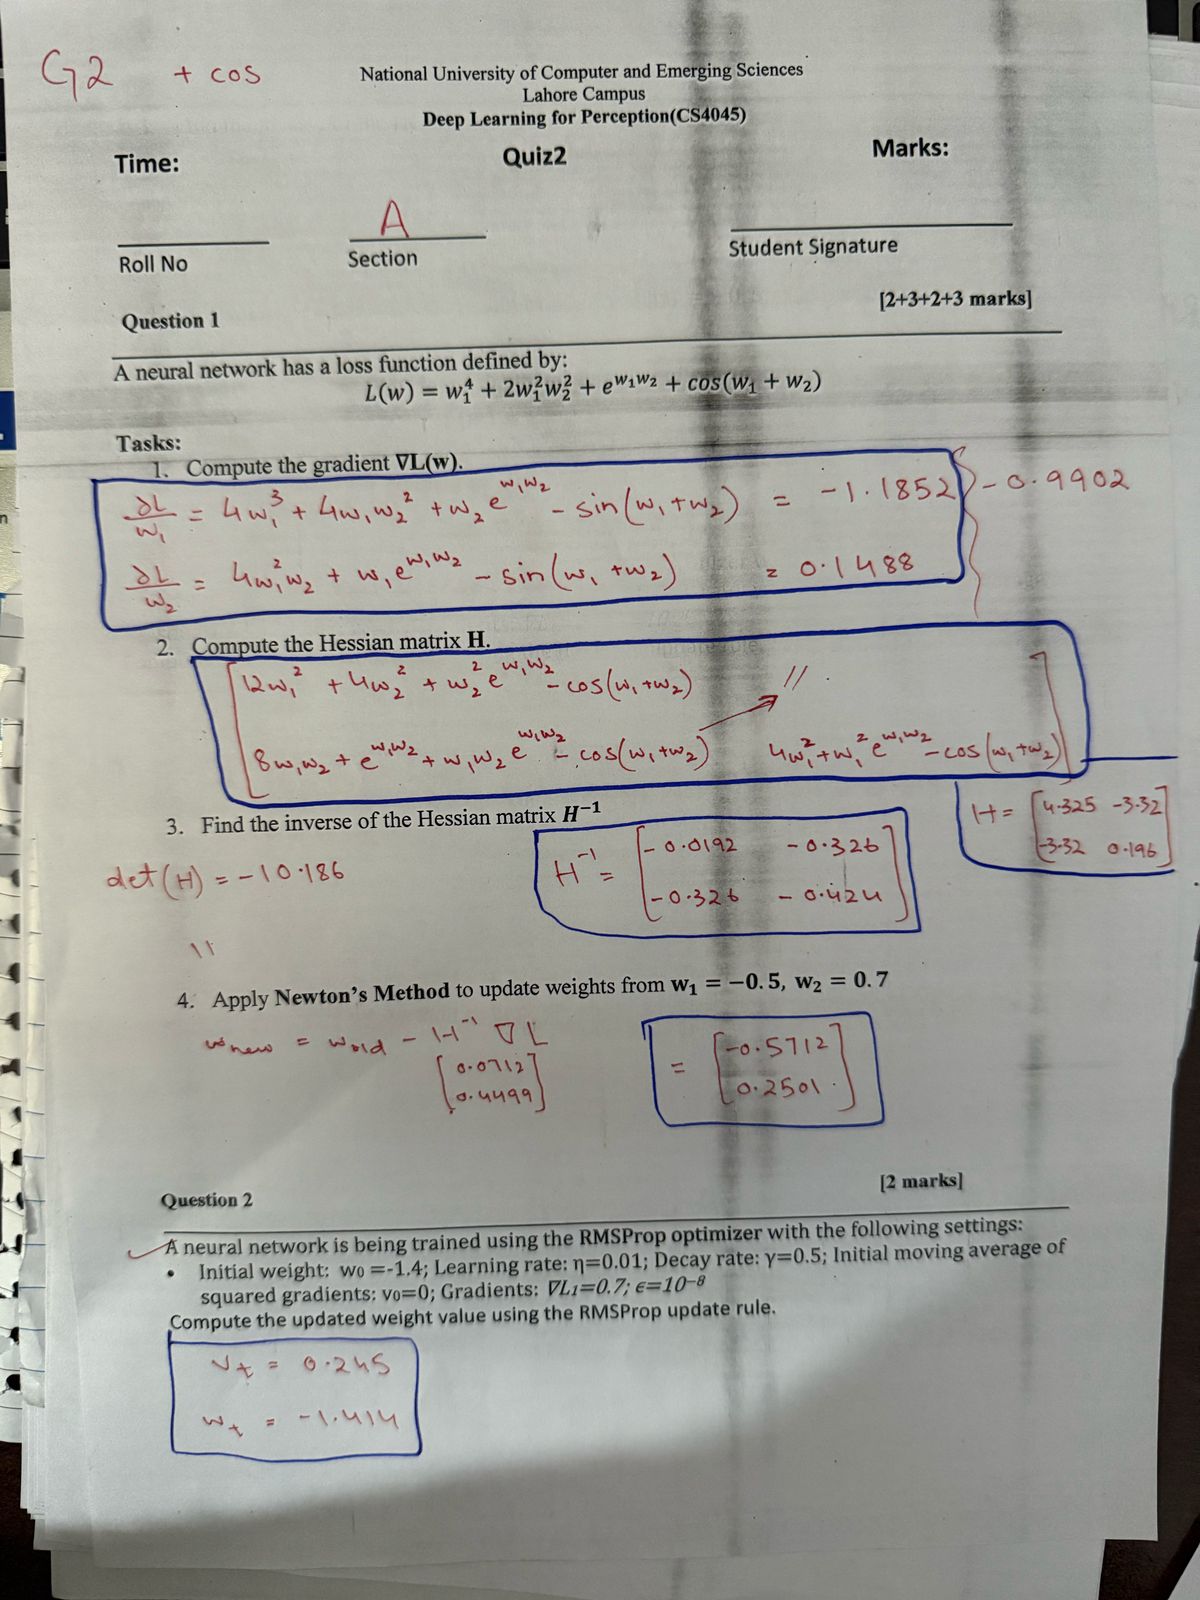 G2 + cos
National University of Computer and Emerging Sciences
Lahore Campus
Deep Learning for Perception(CS4045)
Time: Quiz2 Marks:
A
Roll No Section Student Signature
[2+3+2+3 marks]
Question 1
A neural network has a loss function defined by:
L(w) = w₁⁴ + 2w₁²w₂² + e^(w₁w₂) + cos(w₁ + w₂)
Tasks:
1. Compute the gradient ∇L(w).
∂L/w₁ = 4w₁³ + 4w₁w₂² + w₂e^(w₁w₂) - sin(w₁+w₂) = -1.1852 } -0.9902
∂L/w₂ = 4w₁²w₂ + w₁e^(w₁w₂) - sin(w₁+w₂) = 0.1488
2. Compute the Hessian matrix H.
[12w₁² + 4w₂² + w₂²e^(w₁w₂) - cos(w₁+w₂) //
8w₁w₂ + e^(w₁w₂) + w₁w₂e^(w₁w₂) - cos(w₁+w₂) 4w₁² + w₁²e^(w₁w₂) - cos(w₁+w₂)]
H = [4.325 -3.32
-3.32 0.196]
3. Find the inverse of the Hessian matrix H⁻¹
det(H) = -10.186
H⁻¹ = [-0.0192 -0.326
-0.326 -0.424]
11
4. Apply Newton's Method to update weights from w₁ = −0.5, w₂ = 0.7
w new = w old - H⁻¹ ∇L
[0.0712
0.4499]
= [-0.5712
0.2501]
[2 marks]
Question 2
A neural network is being trained using the RMSProp optimizer with the following settings:
• Initial weight: w₀ =-1.4; Learning rate: η=0.01; Decay rate: γ=0.5; Initial moving average of
squared gradients: v₀=0; Gradients: ∇L₁=0.7; ϵ=10⁻⁸
Compute the updated weight value using the RMSProp update rule.
Vt = 0.245
wt = -1.414